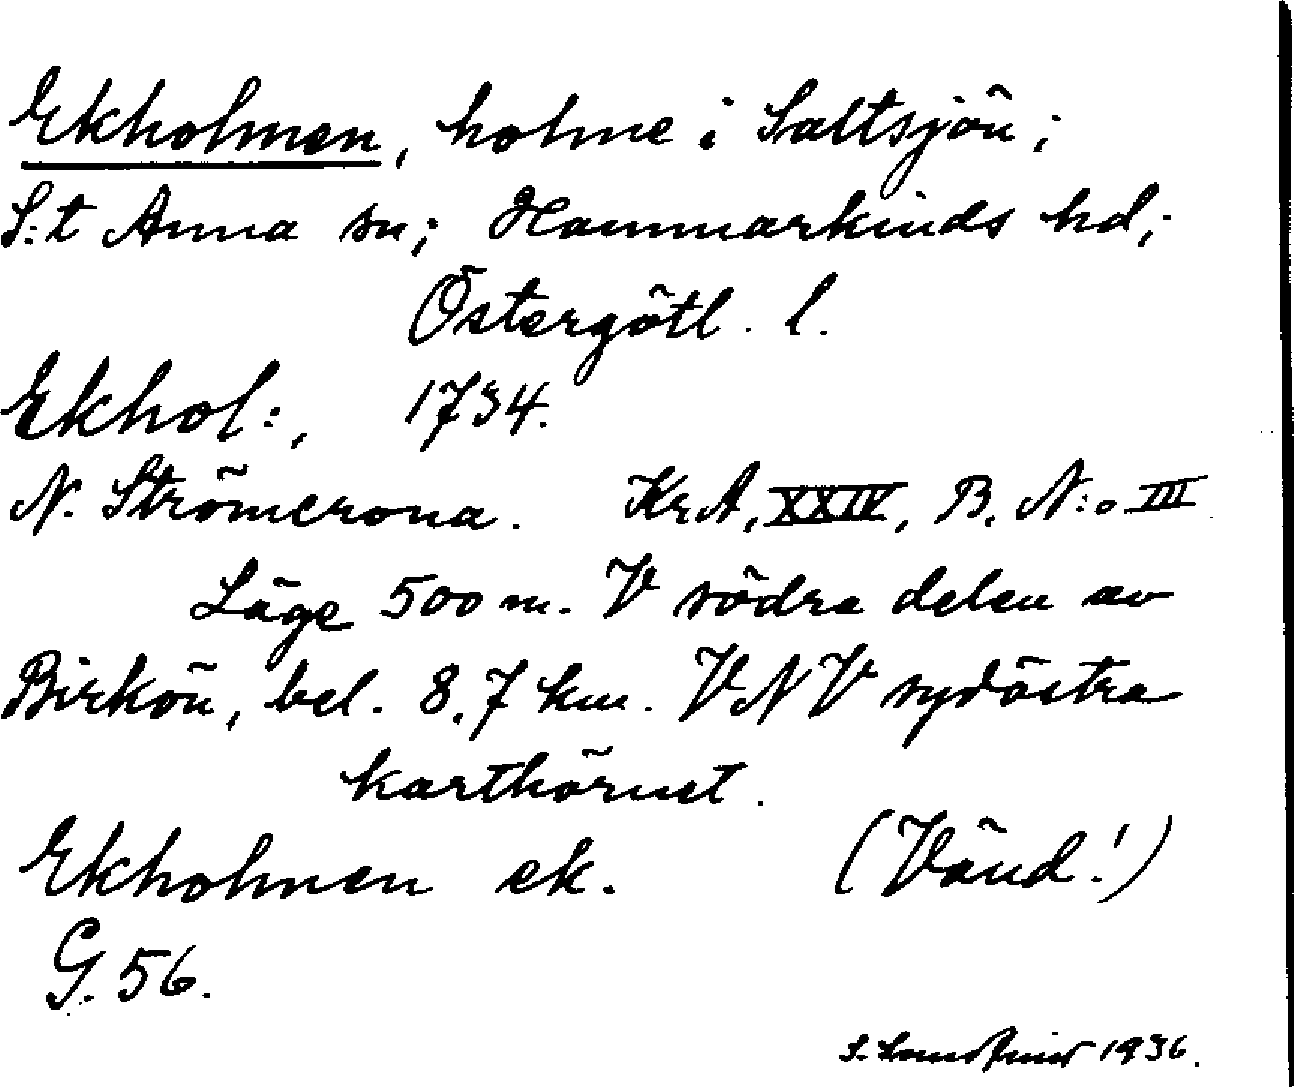 Ekholmen, holme i Saltsjön;
S:t Anna sn; Hammarkinds hd;
Östergötl. l.
Ekhol:, 1734.
N. Strömerona. KrA, XXIV, B. N:o III
Läge 500 m. V södra delen av
Birkön, bel. 8,7 km. VNV sydöstra
karthörnet.
Ekholmen ek. (Vänd!)
G. 56.
S. 1936.